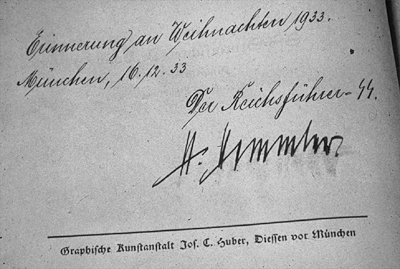 Erinnerung an Weihnachten 1933.
München, 16.12.33
Der Reichsführer-SS.
H. Himmler.
Graphische Kunstanstalt Jos. C. Huber, Diessen vor München